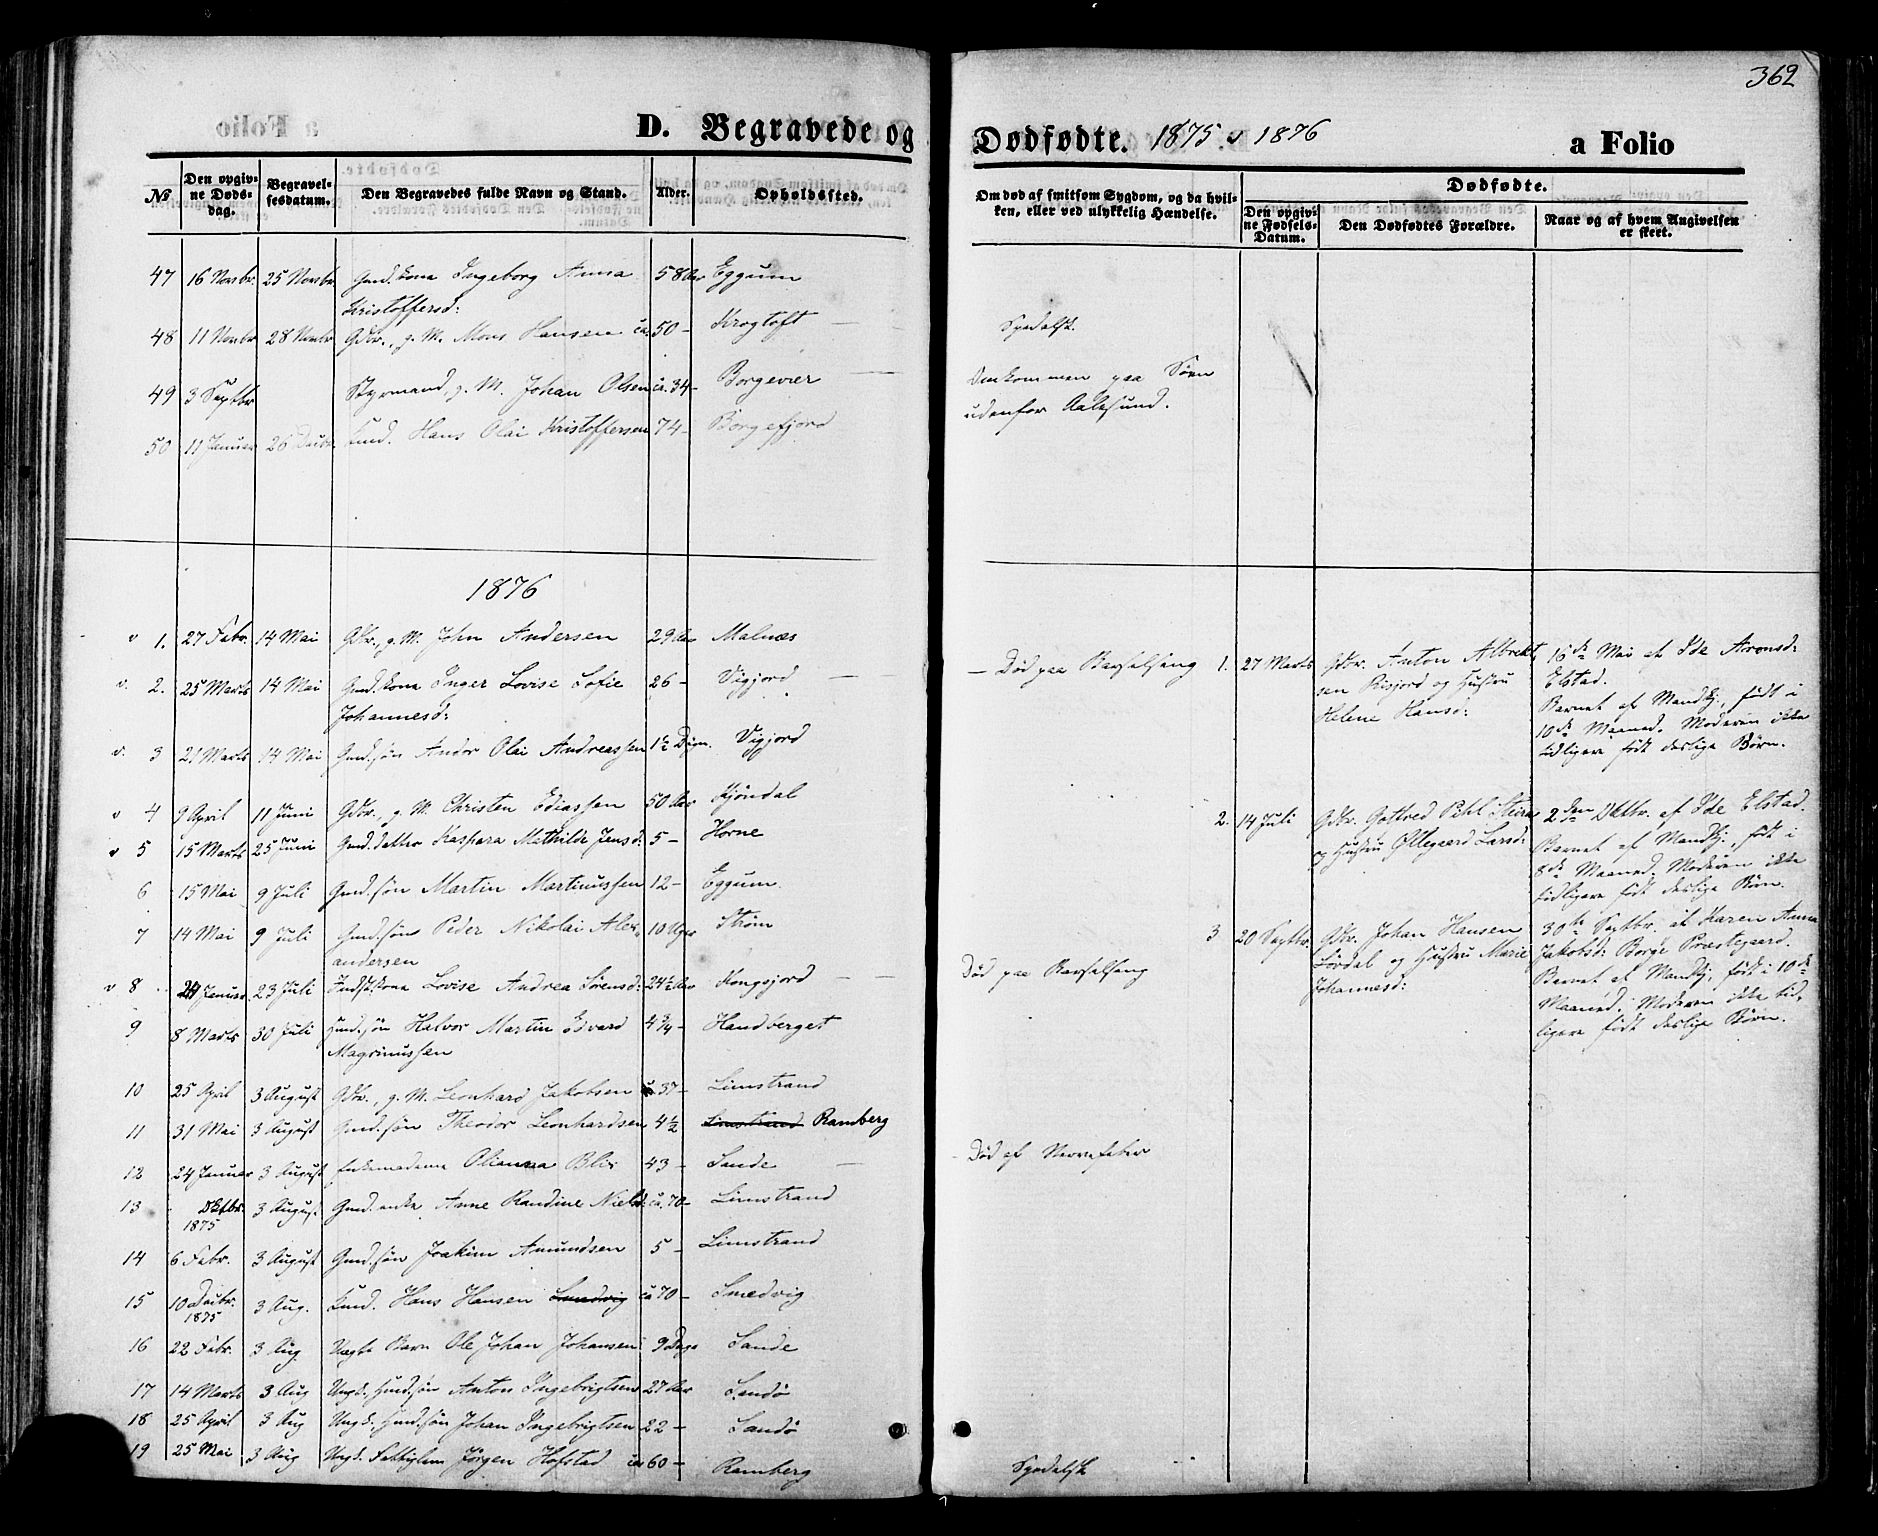 362
D. Begravede og Dødfødte. 1875 & 1876 a Folio
№ Den opgivne Dødsdag. Begravelsesdatum. Den Begravedes fulde Navn og Stand. Alder. Opholdssted.
Om død af smitsom Sygdom, og da hvilken, eller ved ulykkelig Hændelse.
Dødfødte.
Den opgivne Fødsels-Datum. Den Dødfødtes Forældre. Naar og af hvem Angivelsen er skeet.
47 16 Novbr. 25 Novbr. Gmd.kona Ingeborg Anna 58 Aar Eggum
Kristoffersd:
48 11 Novbr 28 Novbr Gdbr., g. M. Mons Hansen ca. 50 - Krogtoft
Spedalsk.
49 3 Septbr Styrmand, g. M. Johan Olsen ca. 34 - Borgevær
Omkommen paa Søen
udenfor Aalesund.
50 11 Januar 26 Decbr. Hans Olai Kristoffersen 74 - Borgefjord
1876
v 1. 27 Febr. 14 Mai Gdbr., g. M. John Andersen 29 Aar Malnæs
v. 2. 25 Marts 14 Mai Gmd.kona Inger Lovise Sofie 26 - Vigjord
Johannesd:
- Død paa Barselseng
v. 3 21 Marts 14 Mai Gmd.søn Andor Olai Andreassen 1½ Døgn. Vigjord
v 4 9 April 11 Juni Gdbr., g. M. Christen Ediassen 50 Aar
v 5 15 Marts 25 Juni Gmd.datter Kaspara Mathilde Jensd: 5 - Horne
6 15 Mai 9 Juli Gmd.søn Martin Martinussen 12 - Eggum.
7 14 Mai 9 Juli Gmd.søn Peder Nikolai Alex- 10 Uger Strøm
andersen
v 8 Januar 23 Juli Inds.kona Lovise Andrea Sørensd: 24½ Aar Kongsjord
Død paa Barselseng
9 8 Marts 30 Juli Husmd.søn Halvor Martin Edvard 4¾ - Handberget
Magnussen
10 25 April 3 August Gdbr., g. M. Leonhard Jakobsen 37 - Limstrand
11 31 Mai 3 August Gmd.søn Theodor Leonhardsen 4½ Limstrand Ramberg
12 24 Januar 3 August Enkemadame Olianna Blix 43 - Sande
Død af Nervefeber
13 Oktbr. 1875 3 August Gmd.enke Anne Randine Nielsd: ca. 70 - Limstrand
14 6 Febr. 3 August Gmd.søn Joakim Amundsen 5 - Limstrand
15 10 Decbr. 1875 3 Aug. Hans Hansen Smedvig ca 70 - Smedvig
16 22 Febr. 3 Aug. Uægte Barn Ole Johan Johansen 9 Dage Sande
17 14 Marts 3 Aug Ungk., Husmd.søn Anton Ingebrigtsen 27 Aar Sandø
18 25 April 3 Aug Ungk. Husmd.søn Johan Ingebrigtsen 22 - Sandø
19 25 Mai 3 Aug Ungk. Fattiglem Jørgen Hofstad ca 60 - Ramberg
Spedalsk
1. 27 Marts Gdbr. Anton Albrekt- 16de Mai af Ide Aronsd:
sen Risjord og Hustru Elstad.
Helene Hansd: Barnet af Mandkj., født i
10de Maaned. Moderen ikke
tidligere født deslige Børn.
2. 14 Juli Gdbr. Gottfred Pihl 2den Oktbr. af Ide Elstad.
og Hustru Øllegaard Larsd: Barnet af Mandkj., født i
8de Maaned. Moderen ikke
tidligere født deslige Børn.
3 20 Septbr. Gdbr. Johan Hansen 30te Septbr. af Karen Anna
Lørdal og Hustru Marie Jakobsd: Borge Præstegaard.
Johannesd: Barnet af Mandkj., født i 10de
Maaned. Moderen ikke tid-
ligere født deslige Børn.